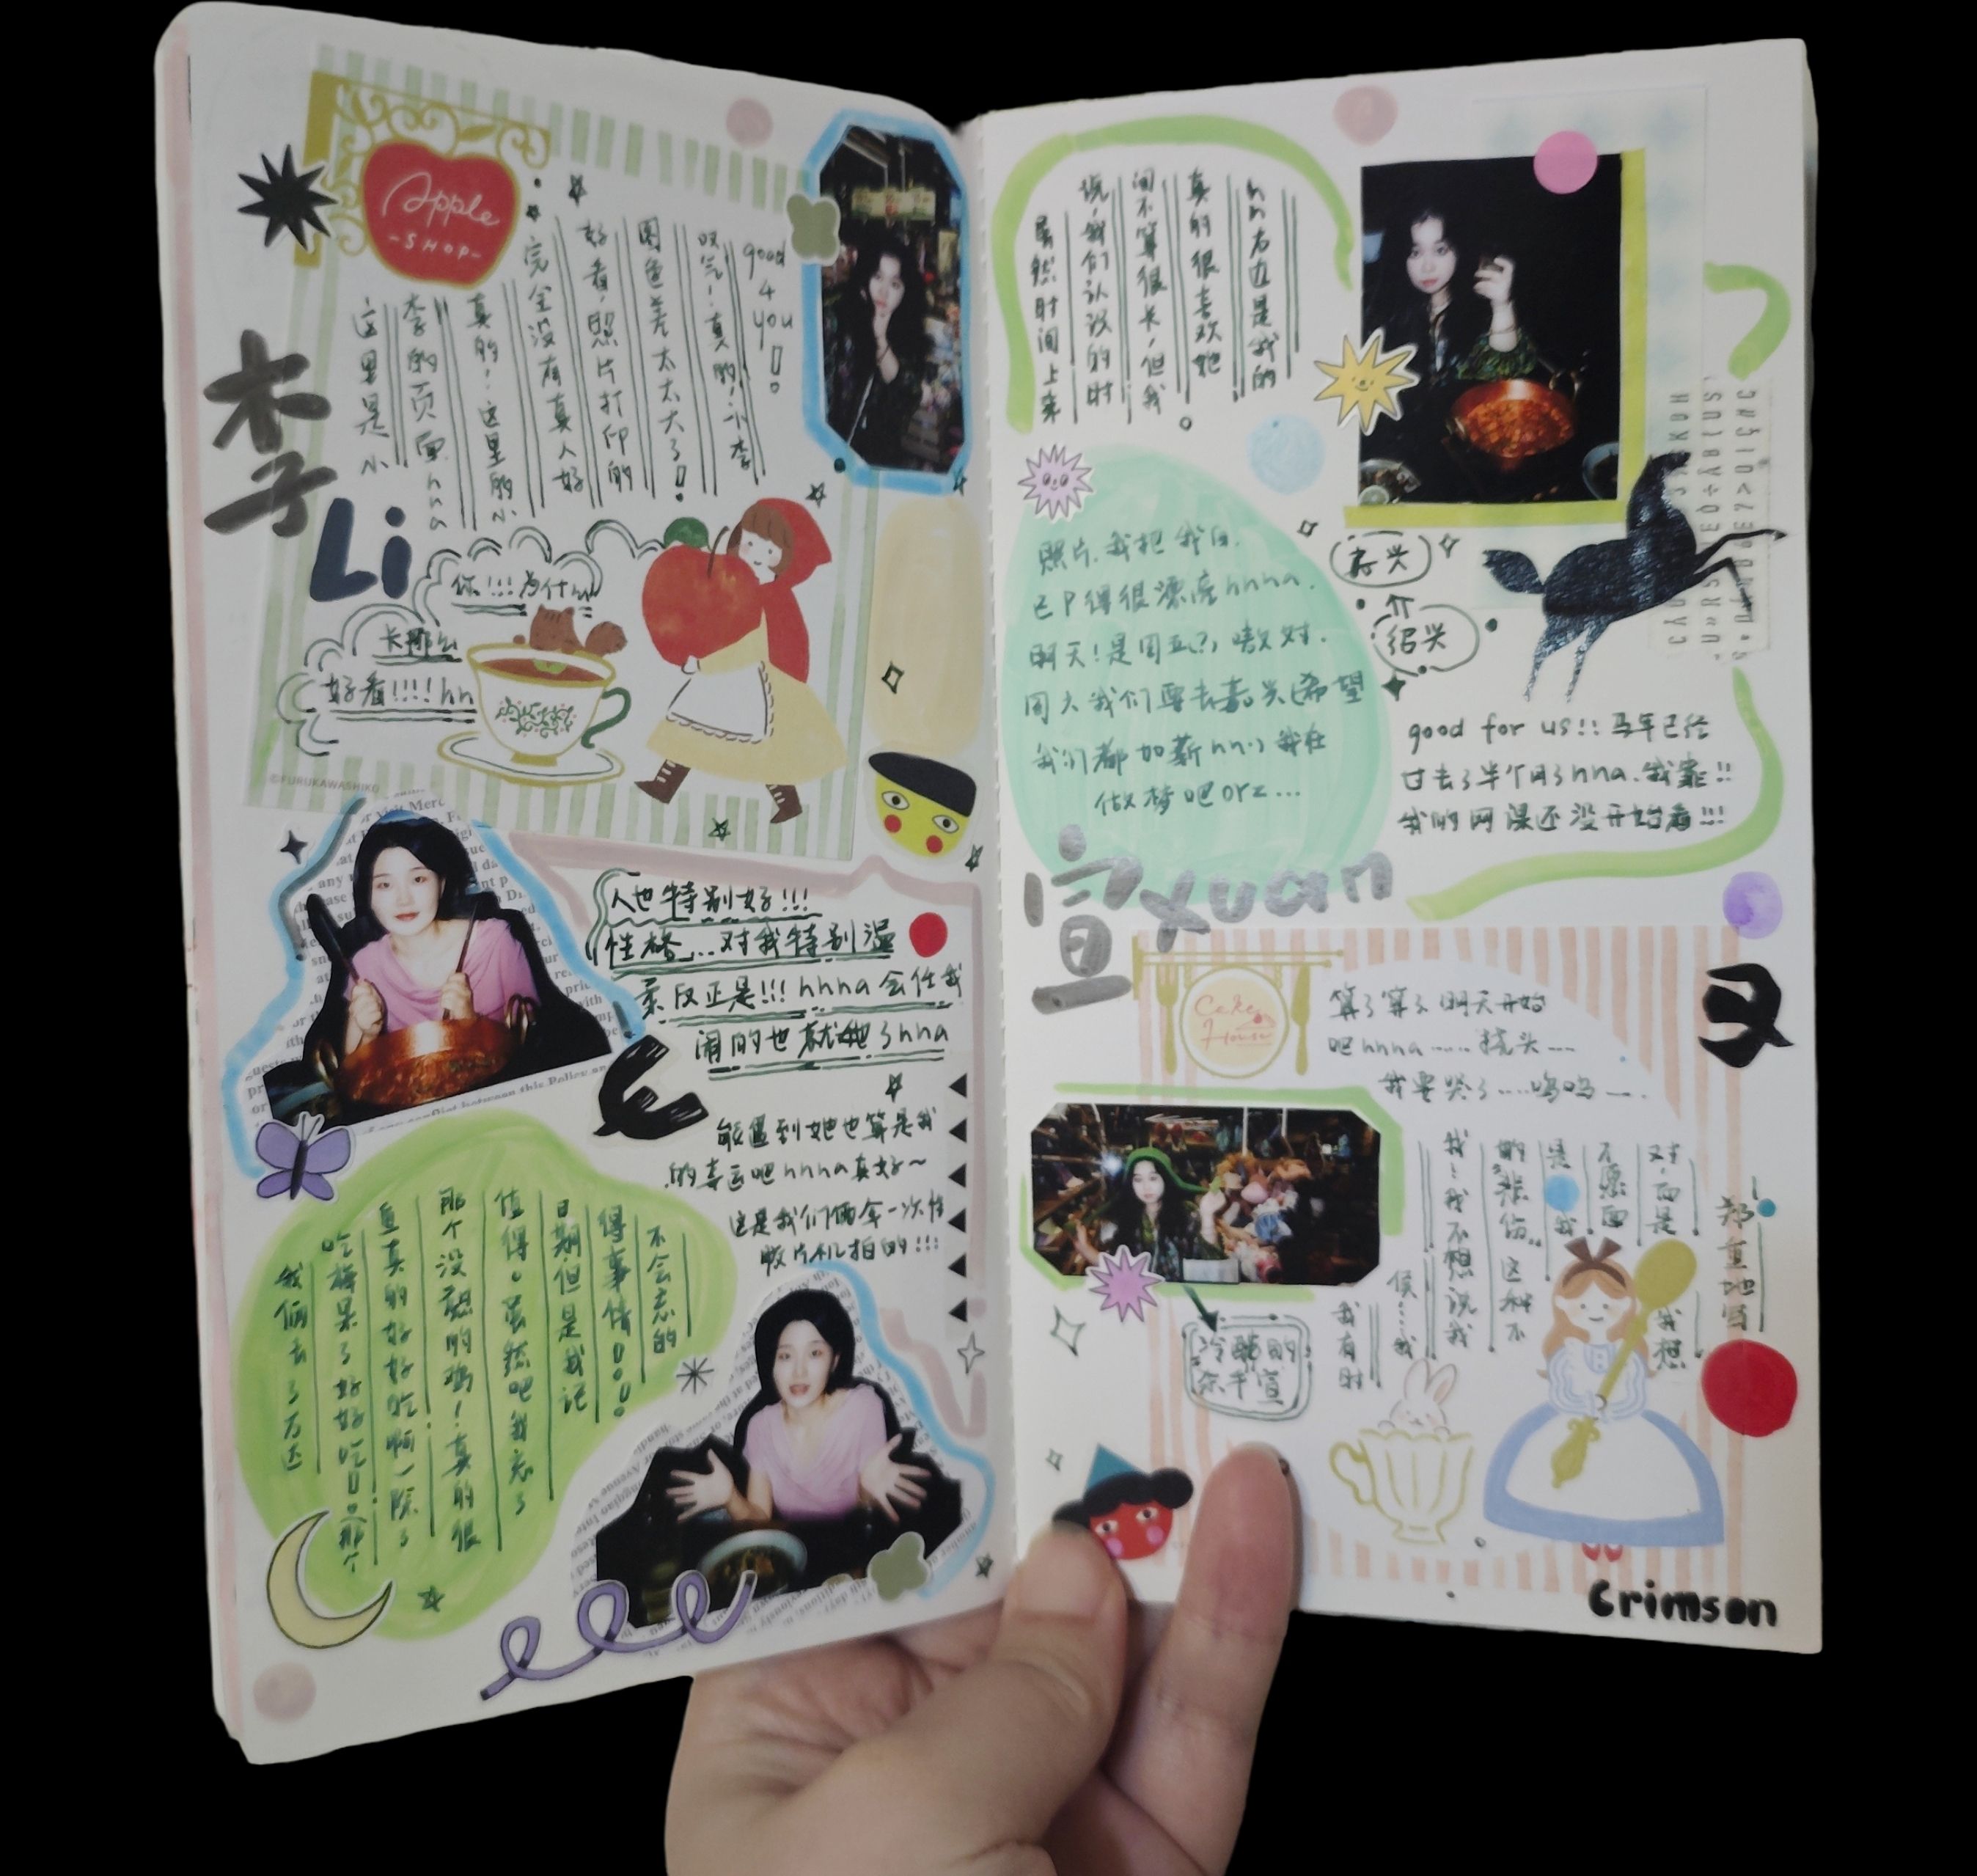 Apple
-SHOP-
李
Li
这里是小
李的页面hna
真的!这里的小
完全没有真人好
好看,照片打印的
图色差太太大了!
叹气!真的!小李
good
4
you!
你!!!为什么
长那么
好看!!!!hn
©FURUKAWASHIKO
人也特别好!!!
性格...对我特别温
柔反正是!!!hhna会任我
闹的也就她了hna
能遇到她也算是我
的幸运吧hnna真好~
这是我们俩拿一次性
胶片机拍的!!!
我俩去了万达
吃糖果了好好吃!!那个
直真的好好吃啊一除了
那个没熟的鸡!真的很
值得。虽然吧我忘了
日期但是我记
得事情!!!
不会忘的
hnn右边是我的
真的很喜欢她。
间不算很长,但我
说,我们认识的时
虽然时间上来
照片.我把我自.
己P得很漂亮hnna.
明天!是周五?,嗷对.
周六我们要去嘉兴(希望
我们都加薪hn:)我在
做梦吧orz...
绍兴
good for us!!马年已经
过去了半个月了hna.我靠!!
我的网课还没开始看!!!
宣xuan
Cake
House
算了算了明天开始
吧hnna……挠头……
我要哭了……呜呜……
冷酷的
郑重地写
我想
对,而是
不愿面
是我
这种不
我!我不想说我
我有时
又
Crimson